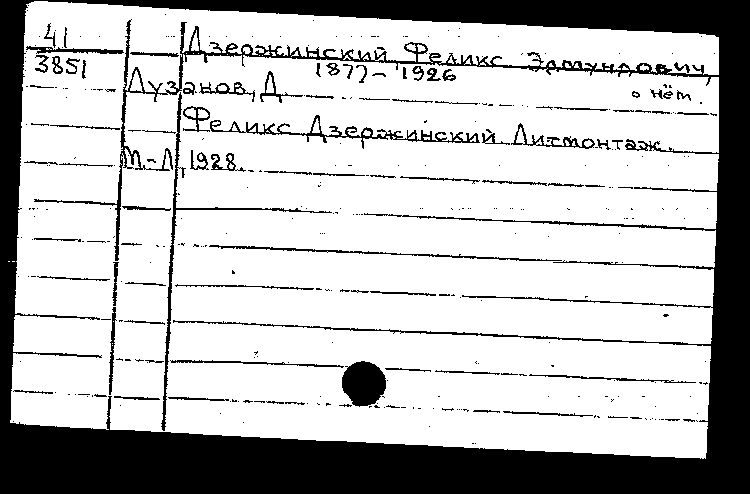 41
3851
Дзержинский, Феликс Эдмундович,
1877-1926
о нём.
Лузанов, Д
Феликс Дзержинский. Литмонтаж.
М.-Л, 1928.